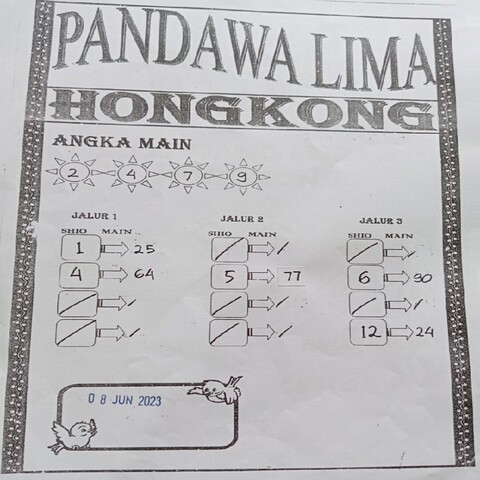 PANDAWA LIMA
HONGKONG
ANGKA MAIN
2 4 7 9
JALUR 1 JALUR 2 JALUR 3
SHIO MAIN SHIO MAIN SHIO MAIN
1 25 / / / /
4 64 5 77 6 90
/ / / / / /
/ / / / 12 24
08 JUN 2023